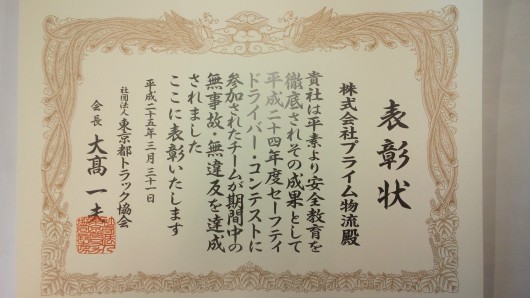 表彰状
株式会社プライム物流殿
貴社は平素より安全教育を
徹底されその成果として
平成二十四年度セーフティ
ドライバー・コンテストに
参加されたチームが期間中の
無事故・無違反を達成
されました
ここに表彰いたします
平成二十五年三月三十一日
社団法人東京都トラック協会
会長 大髙一夫